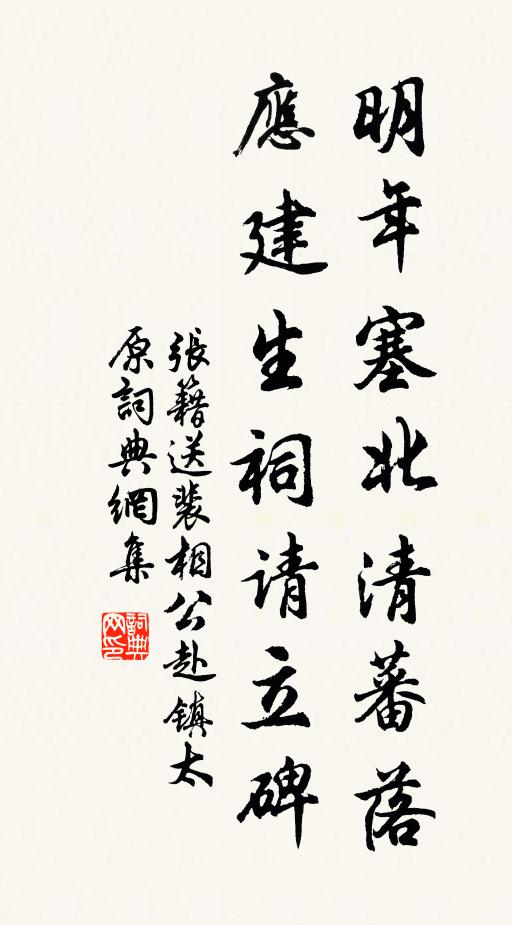 明年塞北清蕃落
應建生祠请立碑
張籍送裴相公赴鎮太
原詞典網集
詞典网印